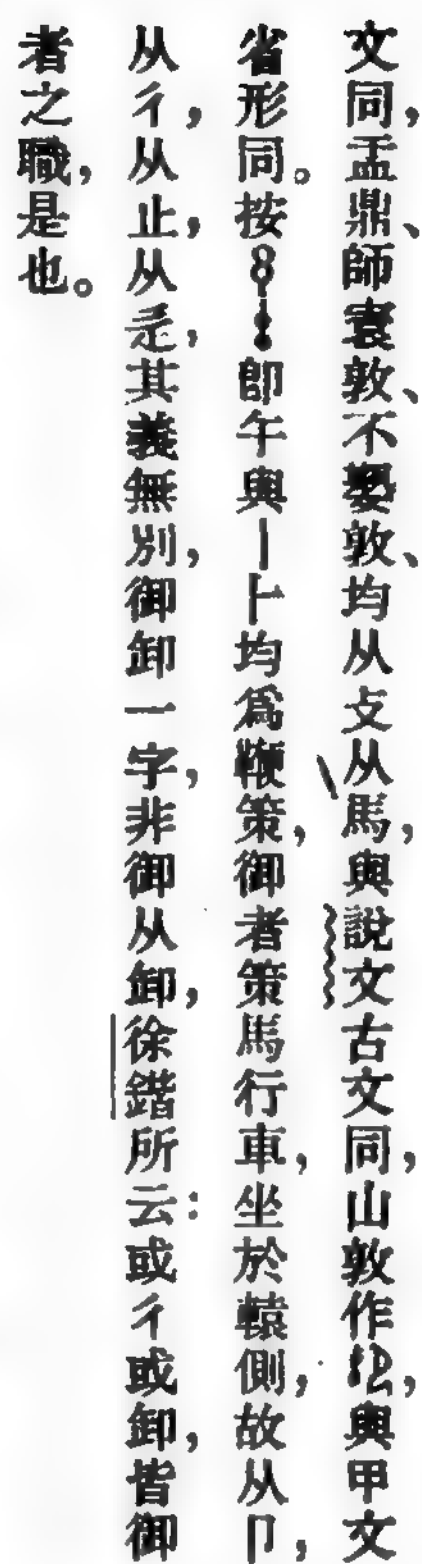 文同，盂鼎、師寰敦、不𡢁敦、均从攴从馬，與說文古文同，山敦作，與甲文
省形同。按即午與丨⺊均為鞭策，御者策馬行車，坐於轅側，故从卩，
从彳，从止，从辵，其義無別，御卸一字，非御从卸，徐鍇所云：或彳或卸，皆御
者之職，是也。